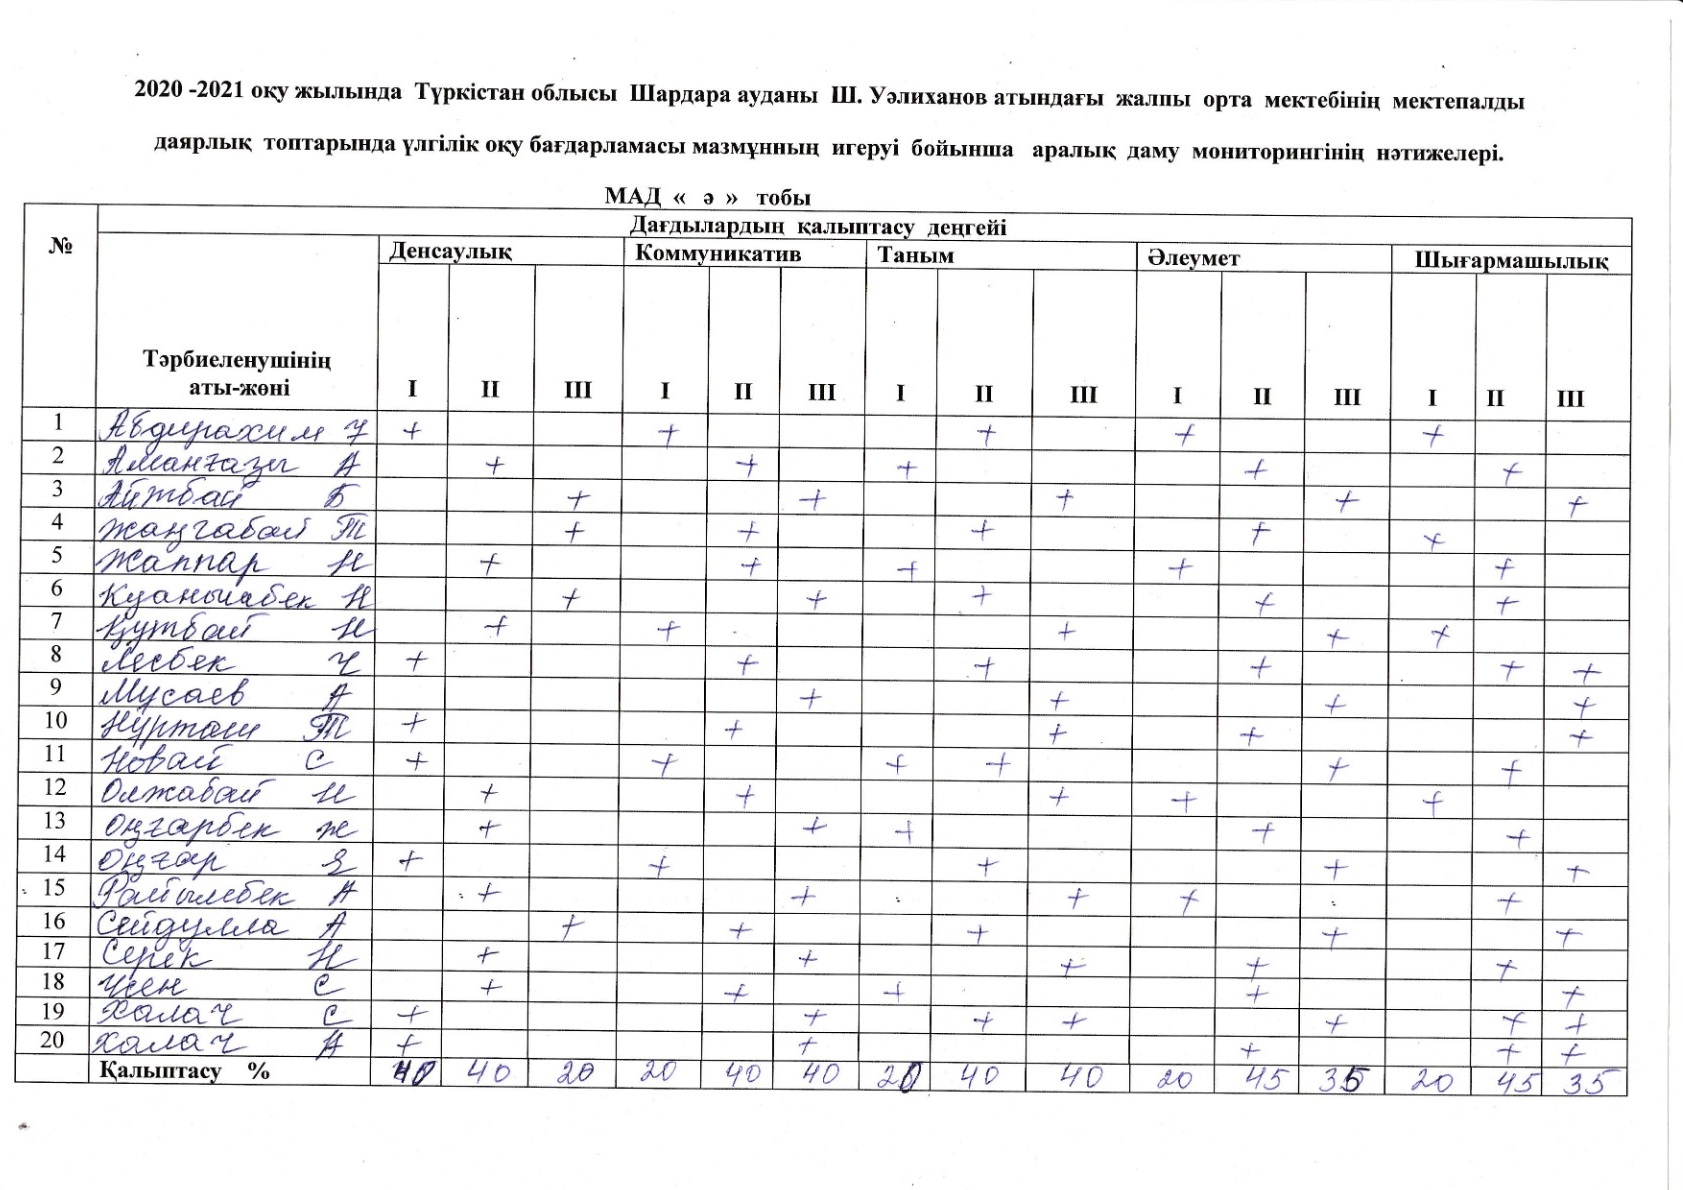 2020 -2021 оқу жылында Түркістан облысы Шардара ауданы Ш. Уәлиханов атындағы жалпы орта мектебінің мектепалды
даярлық топтарында үлгілік оқу бағдарламасы мазмұнның игеруі бойынша аралық даму мониторингінің нәтижелері.
МАД « ә » тобы
№ Дағдылардың қалыптасу деңгейі
Денсаулық Коммуникатив Таным Әлеумет Шығармашылық
Тәрбиеленушінің
аты-жөні I II III I II III I II III I II III I II III
1 Абдирахим + + + + +
2 Аманғазы А + + + + +
3 Айтбай Б + + + + +
4 Жаңгабай Т + + + + +
5 Жаппар Н + + + + +
6 Куанышбек Н + + + + +
7 Құтбай Н + + + + +
8 Лесбек + + + + + +
9 Мусаев А + + + +
10 Нұрташ Т + + + + +
11 Новай С + + + + + +
12 Олжабай Н + + + + +
13 Оңғарбек Ж + + + + +
14 Оңғар + + + + +
15 Райымбек А + + + + +
16 Сейдулла А + + + + +
17 Серік Н + + + + +
18 С + + + + +
19 Халач С + + + + + + +
20 Халач А + + + + +
Қалыптасу % 40 40 20 20 40 40 20 40 40 20 45 35 20 45 35